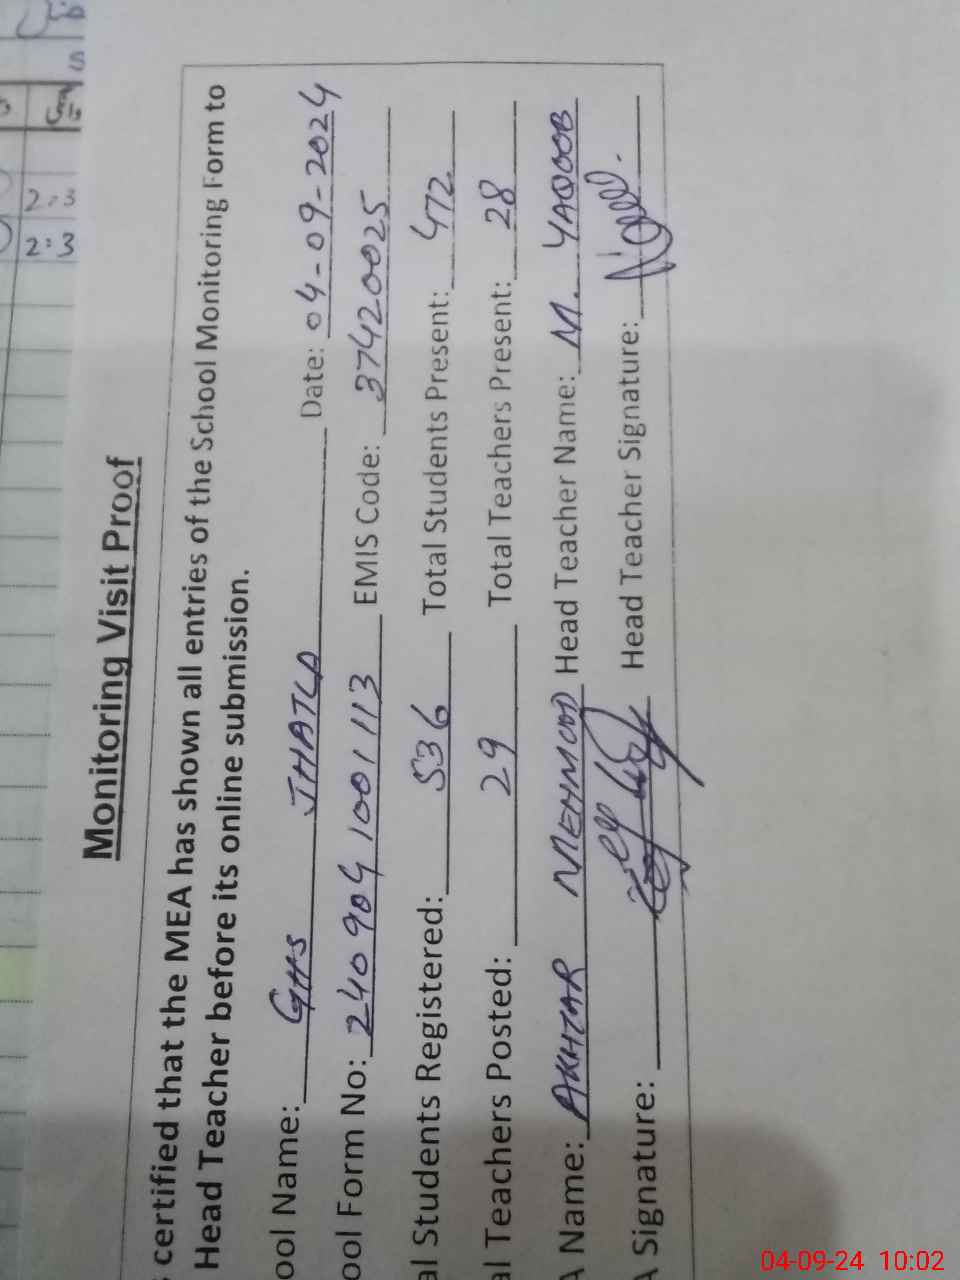 Monitoring Visit Proof
certified that the MEA has shown all entries of the School Monitoring Form to
Head Teacher before its online submission.
ool Name: GHS JHATLA Date: 04-09-2024
ool Form No: 2409041001113 EMIS Code: 37420025
al Students Registered: 536 Total Students Present: 472
al Teachers Posted: 29 Total Teachers Present: 28
A Name: AKHTAR MEHMOOD Head Teacher Name: M. YAQOOB
A Signature: Head Teacher Signature:
2:3
2:3
04-09-24 10:02